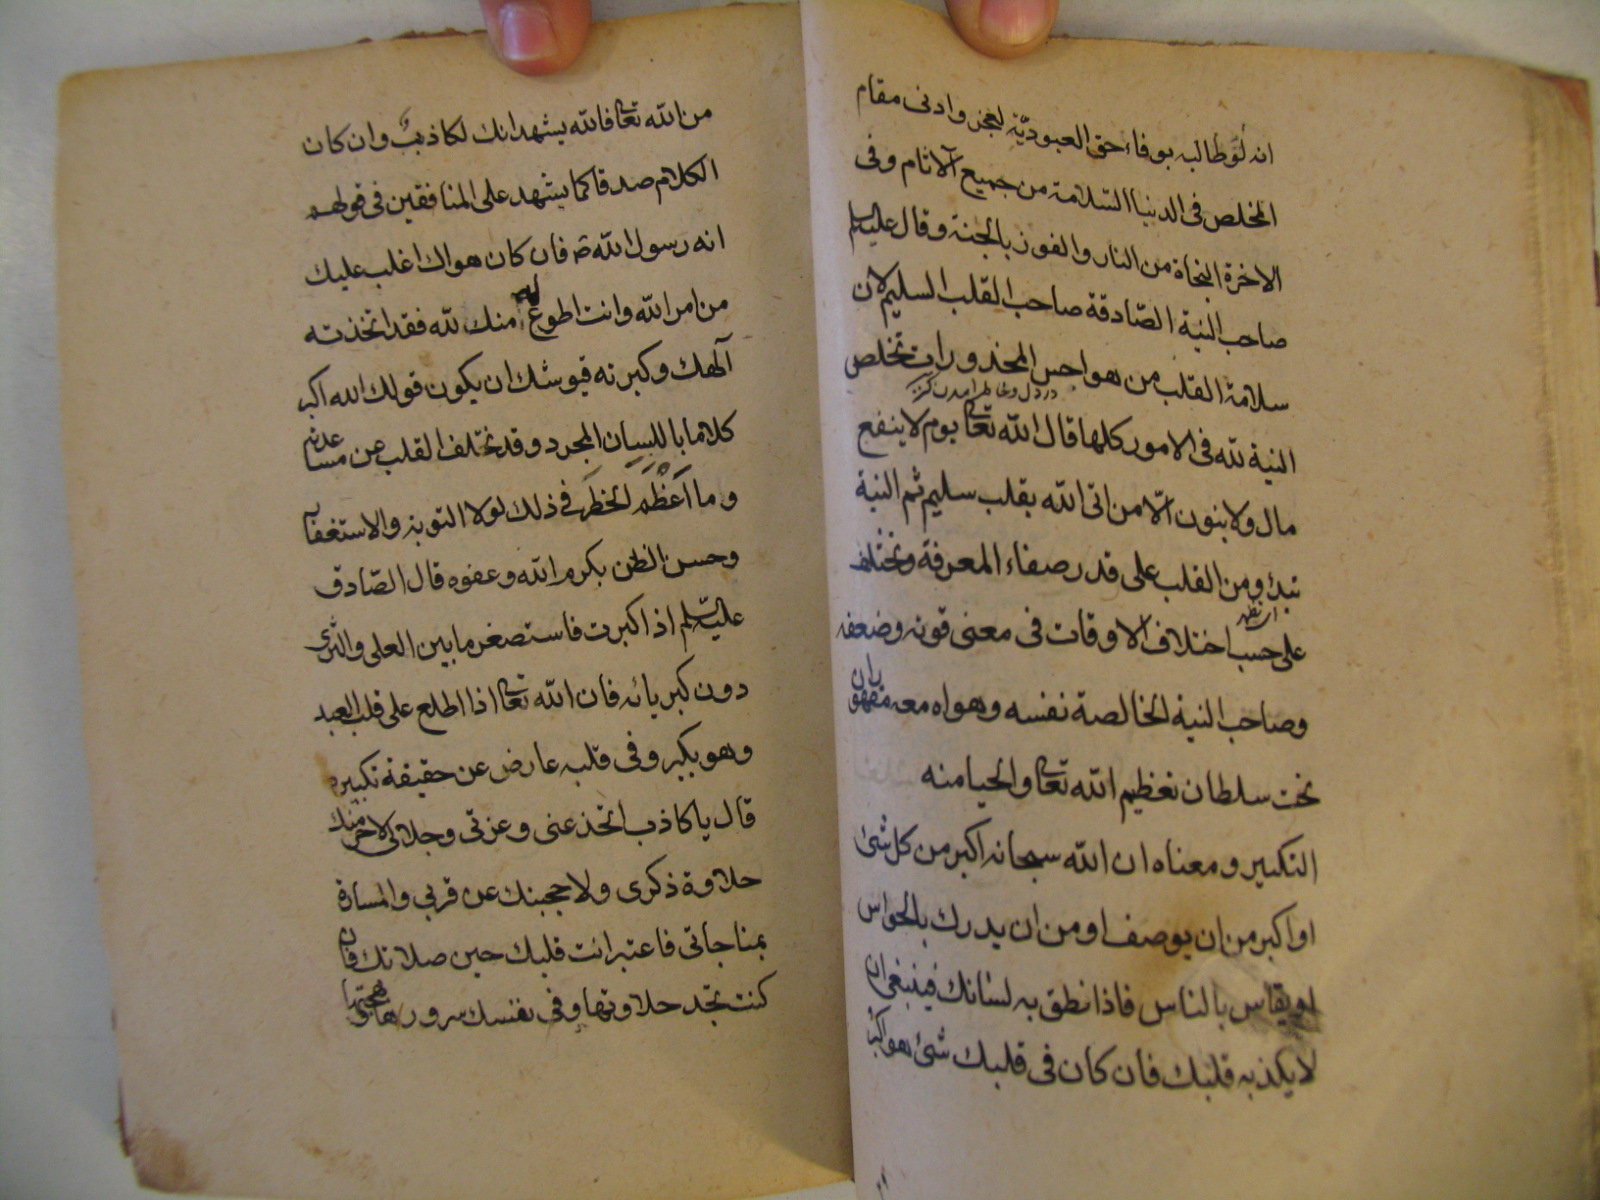 انه لو طالبه بوفاء حق العبوديّة لعجز وادنى مقام
المخلص فى الدنيا السّلامة من جميع الآثام وفى
الاخرة النجاة من النار والفوز بالجنة وقال عليه السلم
صاحب النية الصّادقة صاحب القلب السليم لان
سلامة القلب من هواجس المحذورات تخلص
النية لله فى الامور كلها قال الله تعالى يوم لا ينفع
مال ولا بنون الّا من اتى الله بقلب سليم ثم النية
تبدؤ من القلب على قدر صفاء المعرفة وتختلف
على حسب اختلاف الاوقات فى معنى قوته وضعفه
وصاحب النية الخالصة نفسه وهواه معه مقهوران
تحت سلطان تعظيم الله تعالى والحيا منه
التكبير ومعناه ان الله سبحانه اكبر من كل شئ
او اكبر من ان يوصف او من ان يدرك بالحواس
او يقاس بالناس فاذا نطق به لسانك فينبغى ان
لا يكذبه قلبك فان كان فى قلبك شئ هو اكبر
من الله تعالى فالله يشهد انك لكاذب وان كان
الكلام صدقا كما يشهد على المنافقين فى قولهم
انه رسول الله ص فان كان هواك اغلب عليك
من امر الله وانت اطوع له منك لله فقد اتخذته
آلهك وكبرته فيوشك ان يكون قولك الله اكبر
كلاما باللسان المجرد وقد تختلف القلب عن مساعدته
وما اَعْظَمَ الخطَرَ فى ذلك لولا التوبة والاستغفار
وحسن الظن بكرم الله وعفوه قال الصّادق
عليه السّلم اذا كبرت فاستصغر ما بين العلى والثرى
دون كبريائه فان الله تعالى اذا اطلع على قلب العبد
وهو يكبر وفى قلبه عارض عن حقيقة تكبيره
قال يا كاذب اتخدعنى وعزتى وجلالى لاحرمنك
حلاوة ذكرى ولاحجبنك عن قربي والمسارة
بمناجاتى فاعتبر انت قلبك حين صلاتك فان
كنت تجد حلاوتها وفى نفسك سرورها وبهجتها